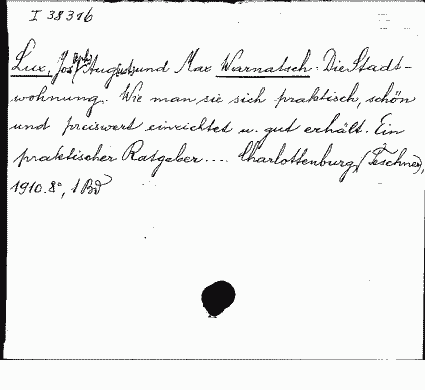 I 38316
Lux, Jos(eph) August, und Max Warnatsch: Die Stadt-
wohnung. Wie man sie sich praktisch, schön
und preiswert einrichtet u. gut erhält. Ein
praktischer Ratgeber.... Charlottenburg, (Teschner),
1910. 8°, 1 Bd